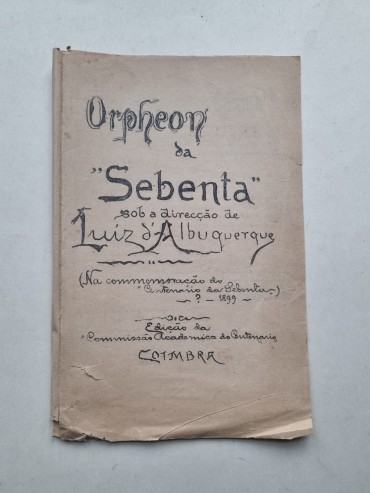 Orpheon
da
"Sebenta"
sob a direcção de
Luiz d'Albuquerque
(Na commemoração do
"Centenario da Sebenta")
— ? — 1899 —
Edição da
"Commissão Academica do Centenario
COIMBRA